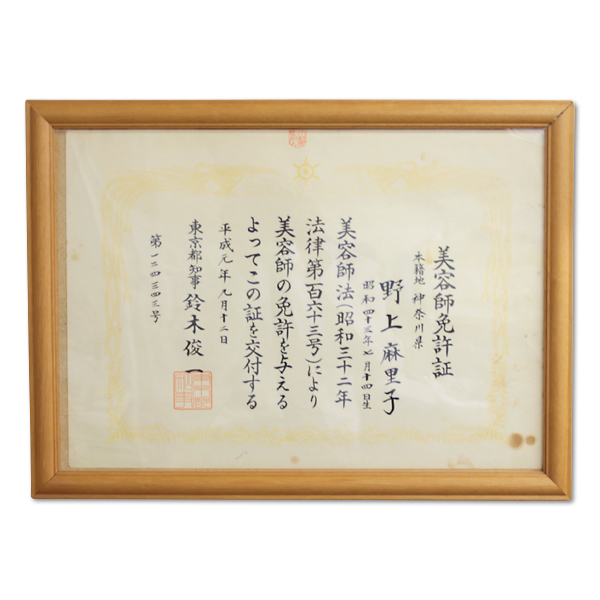 美容師免許証
本籍地 神奈川県
野上麻里子
昭和四十三年七月十四日生
美容師法(昭和三十二年
法律第百六十三号)により
美容師の免許を与える
よってこの証を交付する
平成元年九月十二日
東京都知事 鈴木俊一
第一二四三四三号